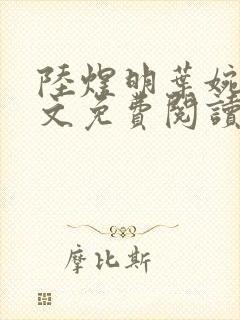 陸煌明葉婉
文免費閱讀
摩比斯